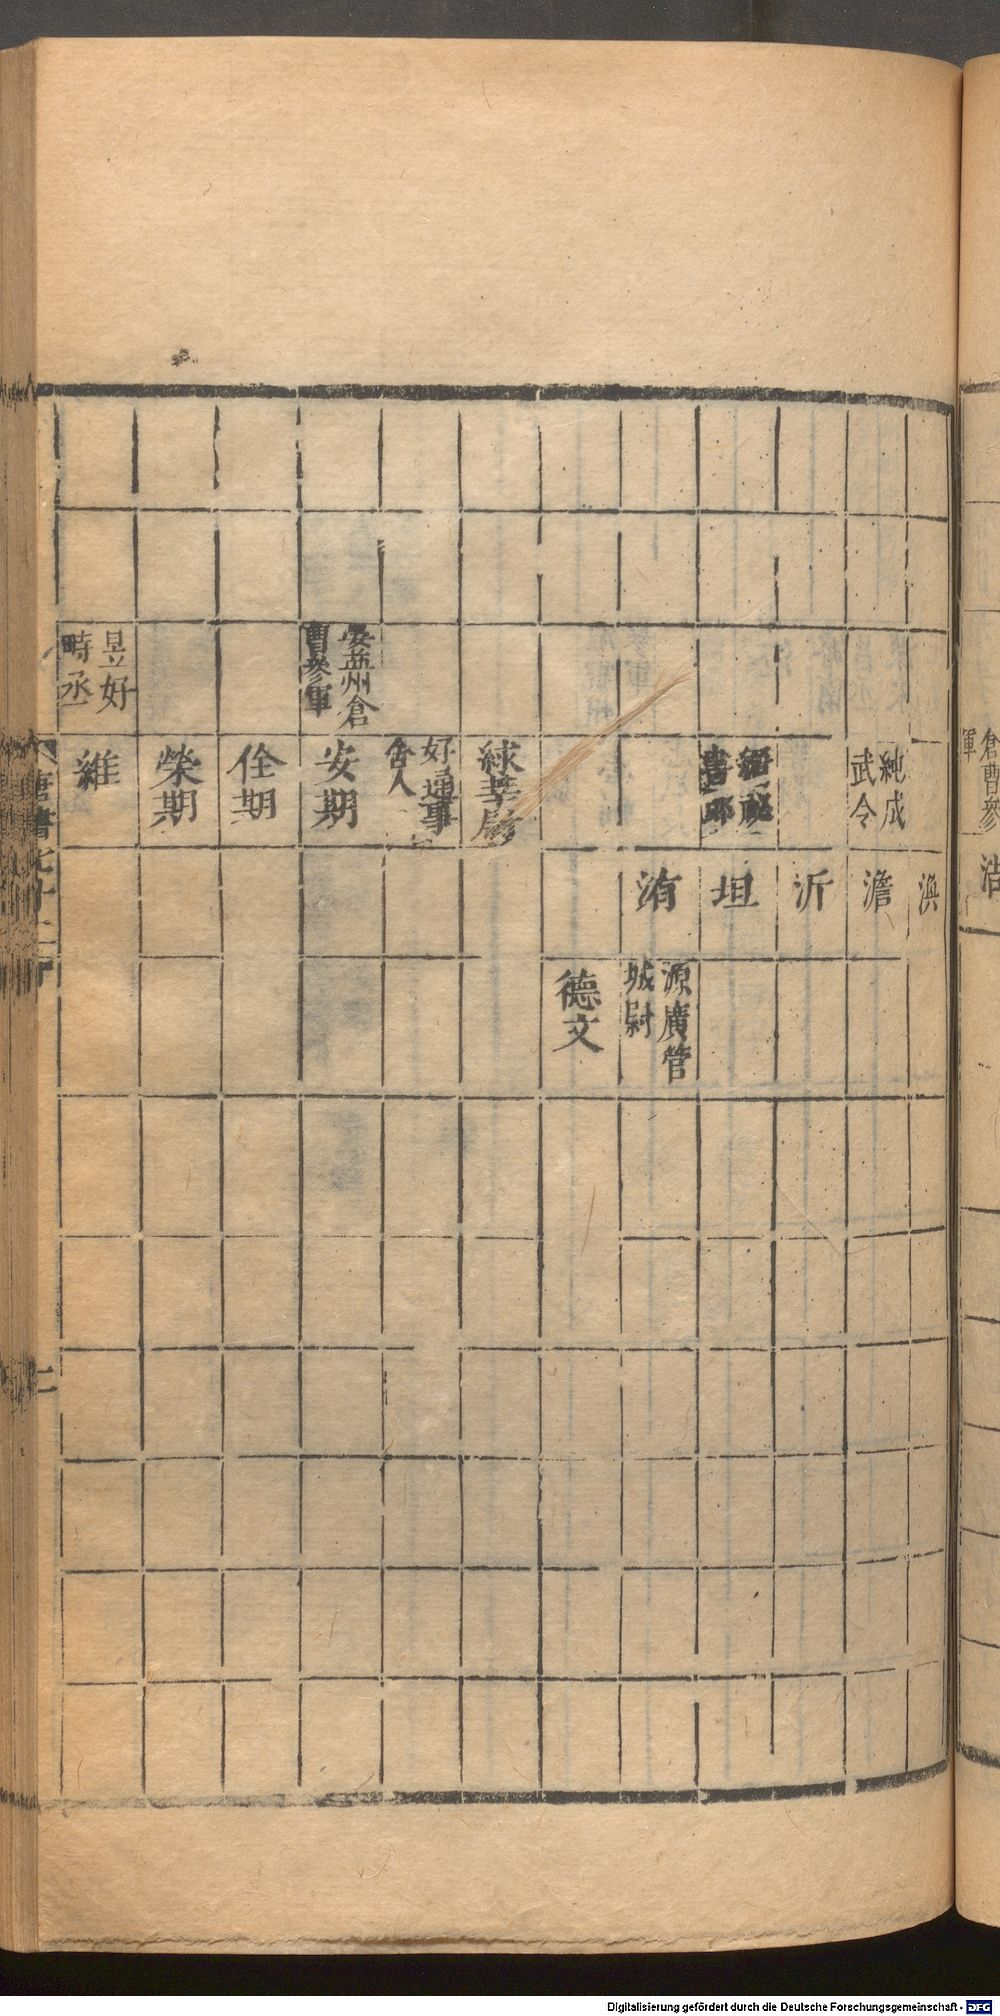 倉曹參
軍
浩
渙
純成
武令
澹
沂
書郎
坦
洧
源廣管
城尉
德文
綠
好通事
舍人
安益州倉
曹參軍
安期
佺期
榮期
昱好
畤丞
維
唐書七十二下
二
Digitalisierung gefördert durch die Deutsche Forschungsgemeinschaft - DFG